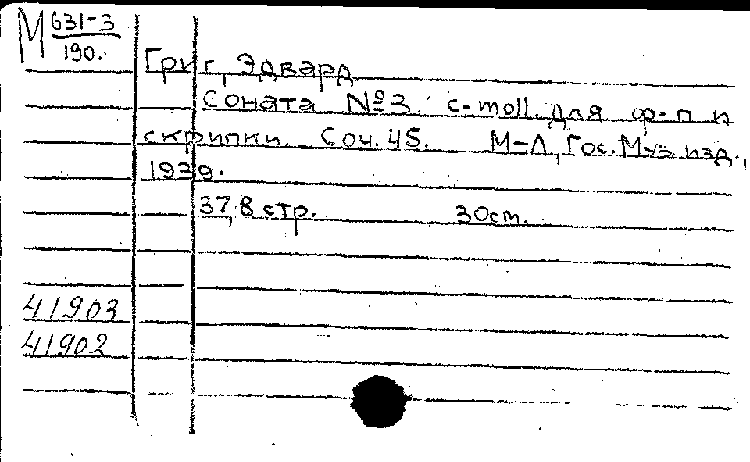 М 631-3
190.
Григ, Эдвард
Соната №3. c-moll. для ф-п и
скрипки. Соч. 45. М-Л, Гос. Муз. изд.,
1939.
37, 8 стр. 30см.
41903
41902